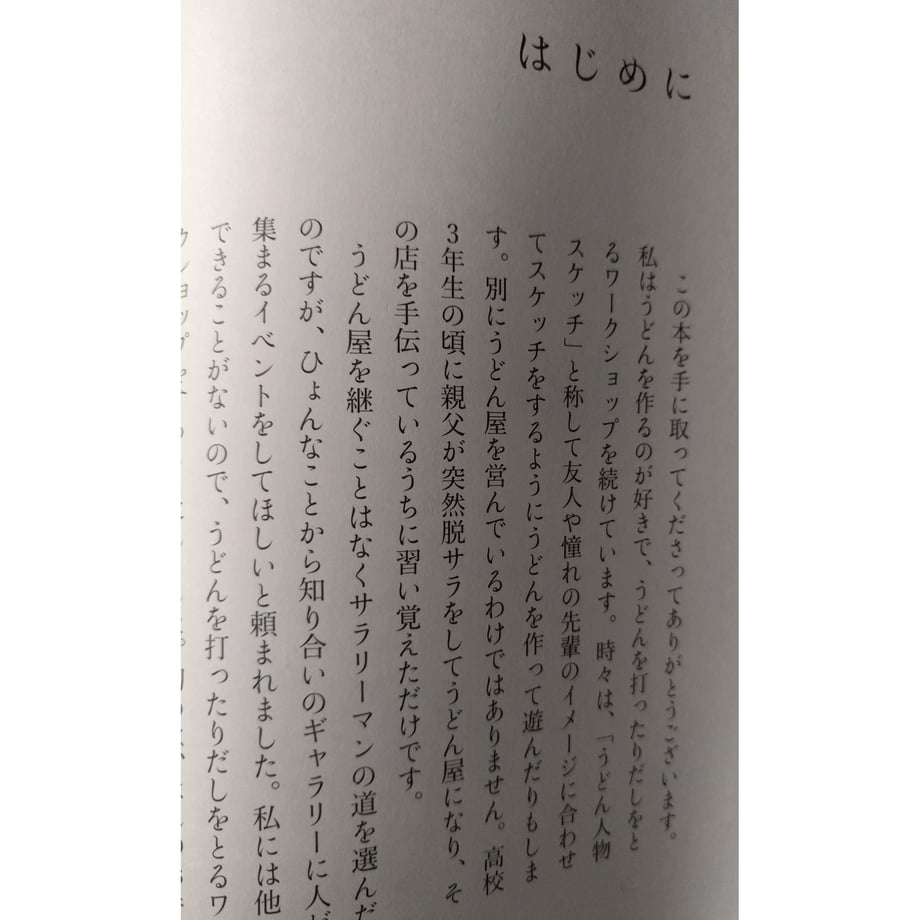 はじめに
この本を手に取ってくださってありがとうございます。
私はうどんを作るのが好きで、うどんを打ったりだしをと
るワークショップを続けています。時々は、「うどん人物
スケッチ」と称して友人や憧れの先輩のイメージに合わせ
てスケッチをするようにうどんを作って遊んだりもしま
す。別にうどん屋を営んでいるわけではありません。高校
3年生の頃に親父が突然脱サラをしてうどん屋になり、そ
の店を手伝っているうちに習い覚えただけです。
うどん屋を継ぐことはなくサラリーマンの道を選んだ
のですが、ひょんなことから知り合いのギャラリーに人が
集まるイベントをしてほしいと頼まれました。私には他
できることがないので、うどんを打ったりだしをとるワ